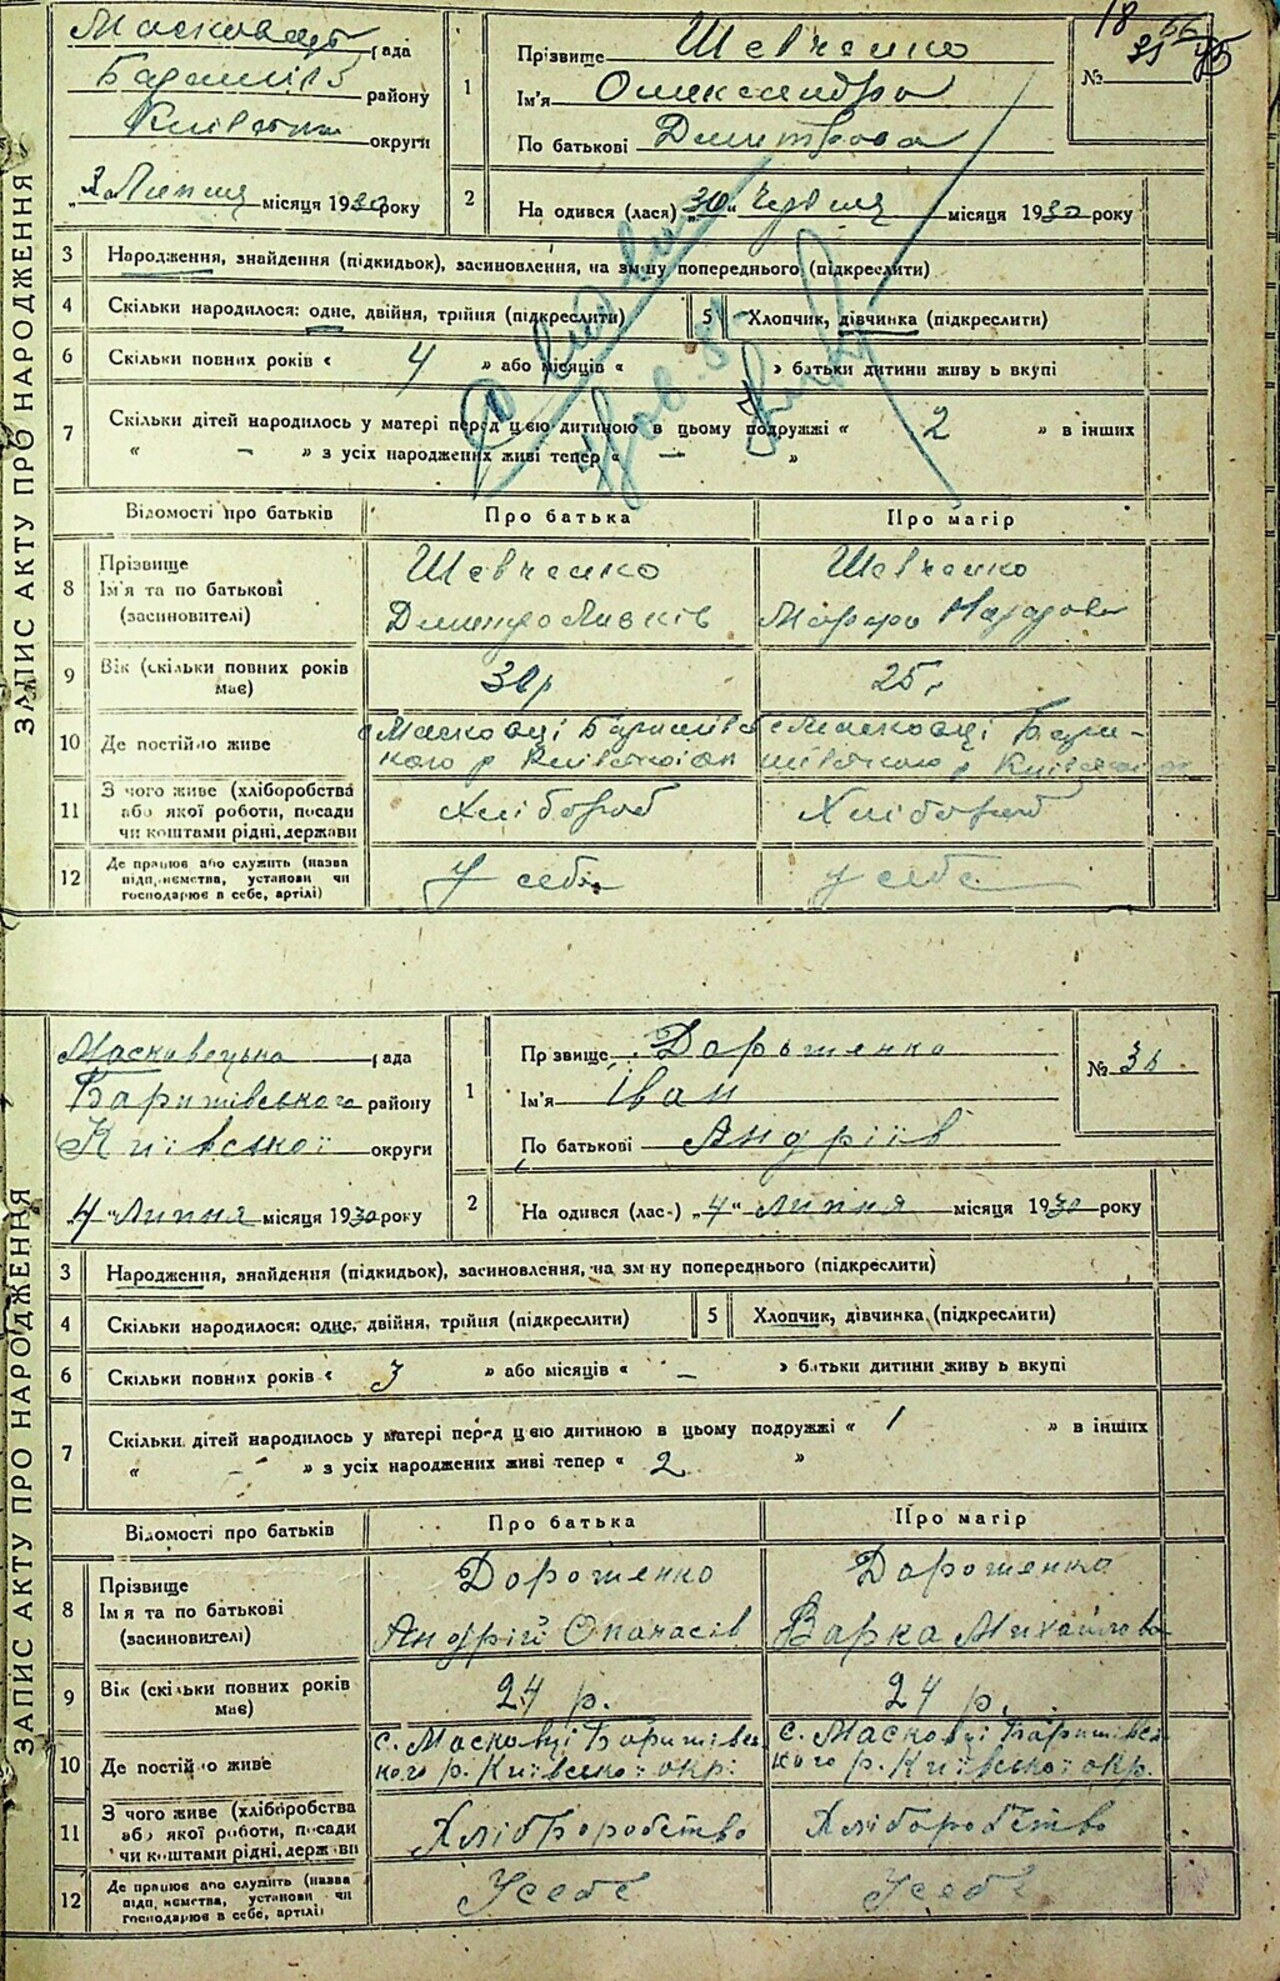 18 56
ЗАПИС АКТУ ПРО НАРОДЖЕННЯ
рада
району
округи
3 Липня місяця 1930 року
1
Прізвище Шевченко
Ім'я Олександра
По батькові Дмитрова
№
2
На одився (лася) „30“ Червня місяця 1930 року
3 Народження, знайдення (підкидьок), засиновлення, на зміну попереднього (підкреслити)
4 Скільки народилося: одне, двійня, трійня (підкреслити) 5 Хлопчик, дівчинка (підкреслити)
6 Скільки повних років « 4 » або місяців « » батьки дитини живу ь вкупі
7 Скільки дітей народилось у матері перед цією дитиною в цьому подружжі « 2 » в інших
“ – » з усіх народжених живі тепер « – »
Відомості про батьків Про батька Про матір
8 Прізвище Шевченко Шевченко
Ім'я та по батькові
(засиновителі) Дмитро
9 Вік (скільки повних років 25 р
має)
10 Де постійно живе с Масковці Баришівс с Масковці Бари-
кого р
11 З чого живе (хліборобства
або якої роботи, посади Хлібороб Хлібороб
чи коштами рідні, держави
12 Де працює або служить (назва
підприємства, установи чи У себе У себе
господарює в себе, артілі)
ЗАПИС АКТУ ПРО НАРОДЖЕННЯ
Масковецька рада
Баришівського району
Київської округи
„4“ Липня місяця 1930 року
1
Пр звище Дорошенко
Ім'я Іван
По батькові Андріїв
№
2
На одився (лас-) „4“ липня місяця 1930 року
3 Народження, знайдення (підкидьок), засиновлення, на зм ну попереднього (підкреслити)
4 Скільки народилося: одне, двійня, трійня (підкреслити) 5 Хлопчик, дівчинка (підкреслити)
6 Скільки повних років « 3 » або місяців « – » батьки дитини живу ь вкупі
7 Скільки дітей народилось у матері перед цією дитиною в цьому подружжі « 1 » в інших
“ – » з усіх народжених живі тепер « 2 »
Відомості про батьків Про батька Про матір
8 Прізвище Дорошенко Дорошенко
Ім я та по батькові
(засиновителі) Андрій Опанасів Варка Михайлова
9 Вік (скільки повних років 24 р. 24 р.
має)
10 Де постійно живе с. Масковці Баришівсь с. Масковці Баришівсь
кого р. Київської окр. кого р. Київської окр.
11 З чого живе (хліборобства
або якої роботи, посади Хліборобство Хліборобство
чи коштами рідні, держави
12 Де працює або служить (назва
підприємства, установи чи У себе У себе
господарює в себе, артілі)